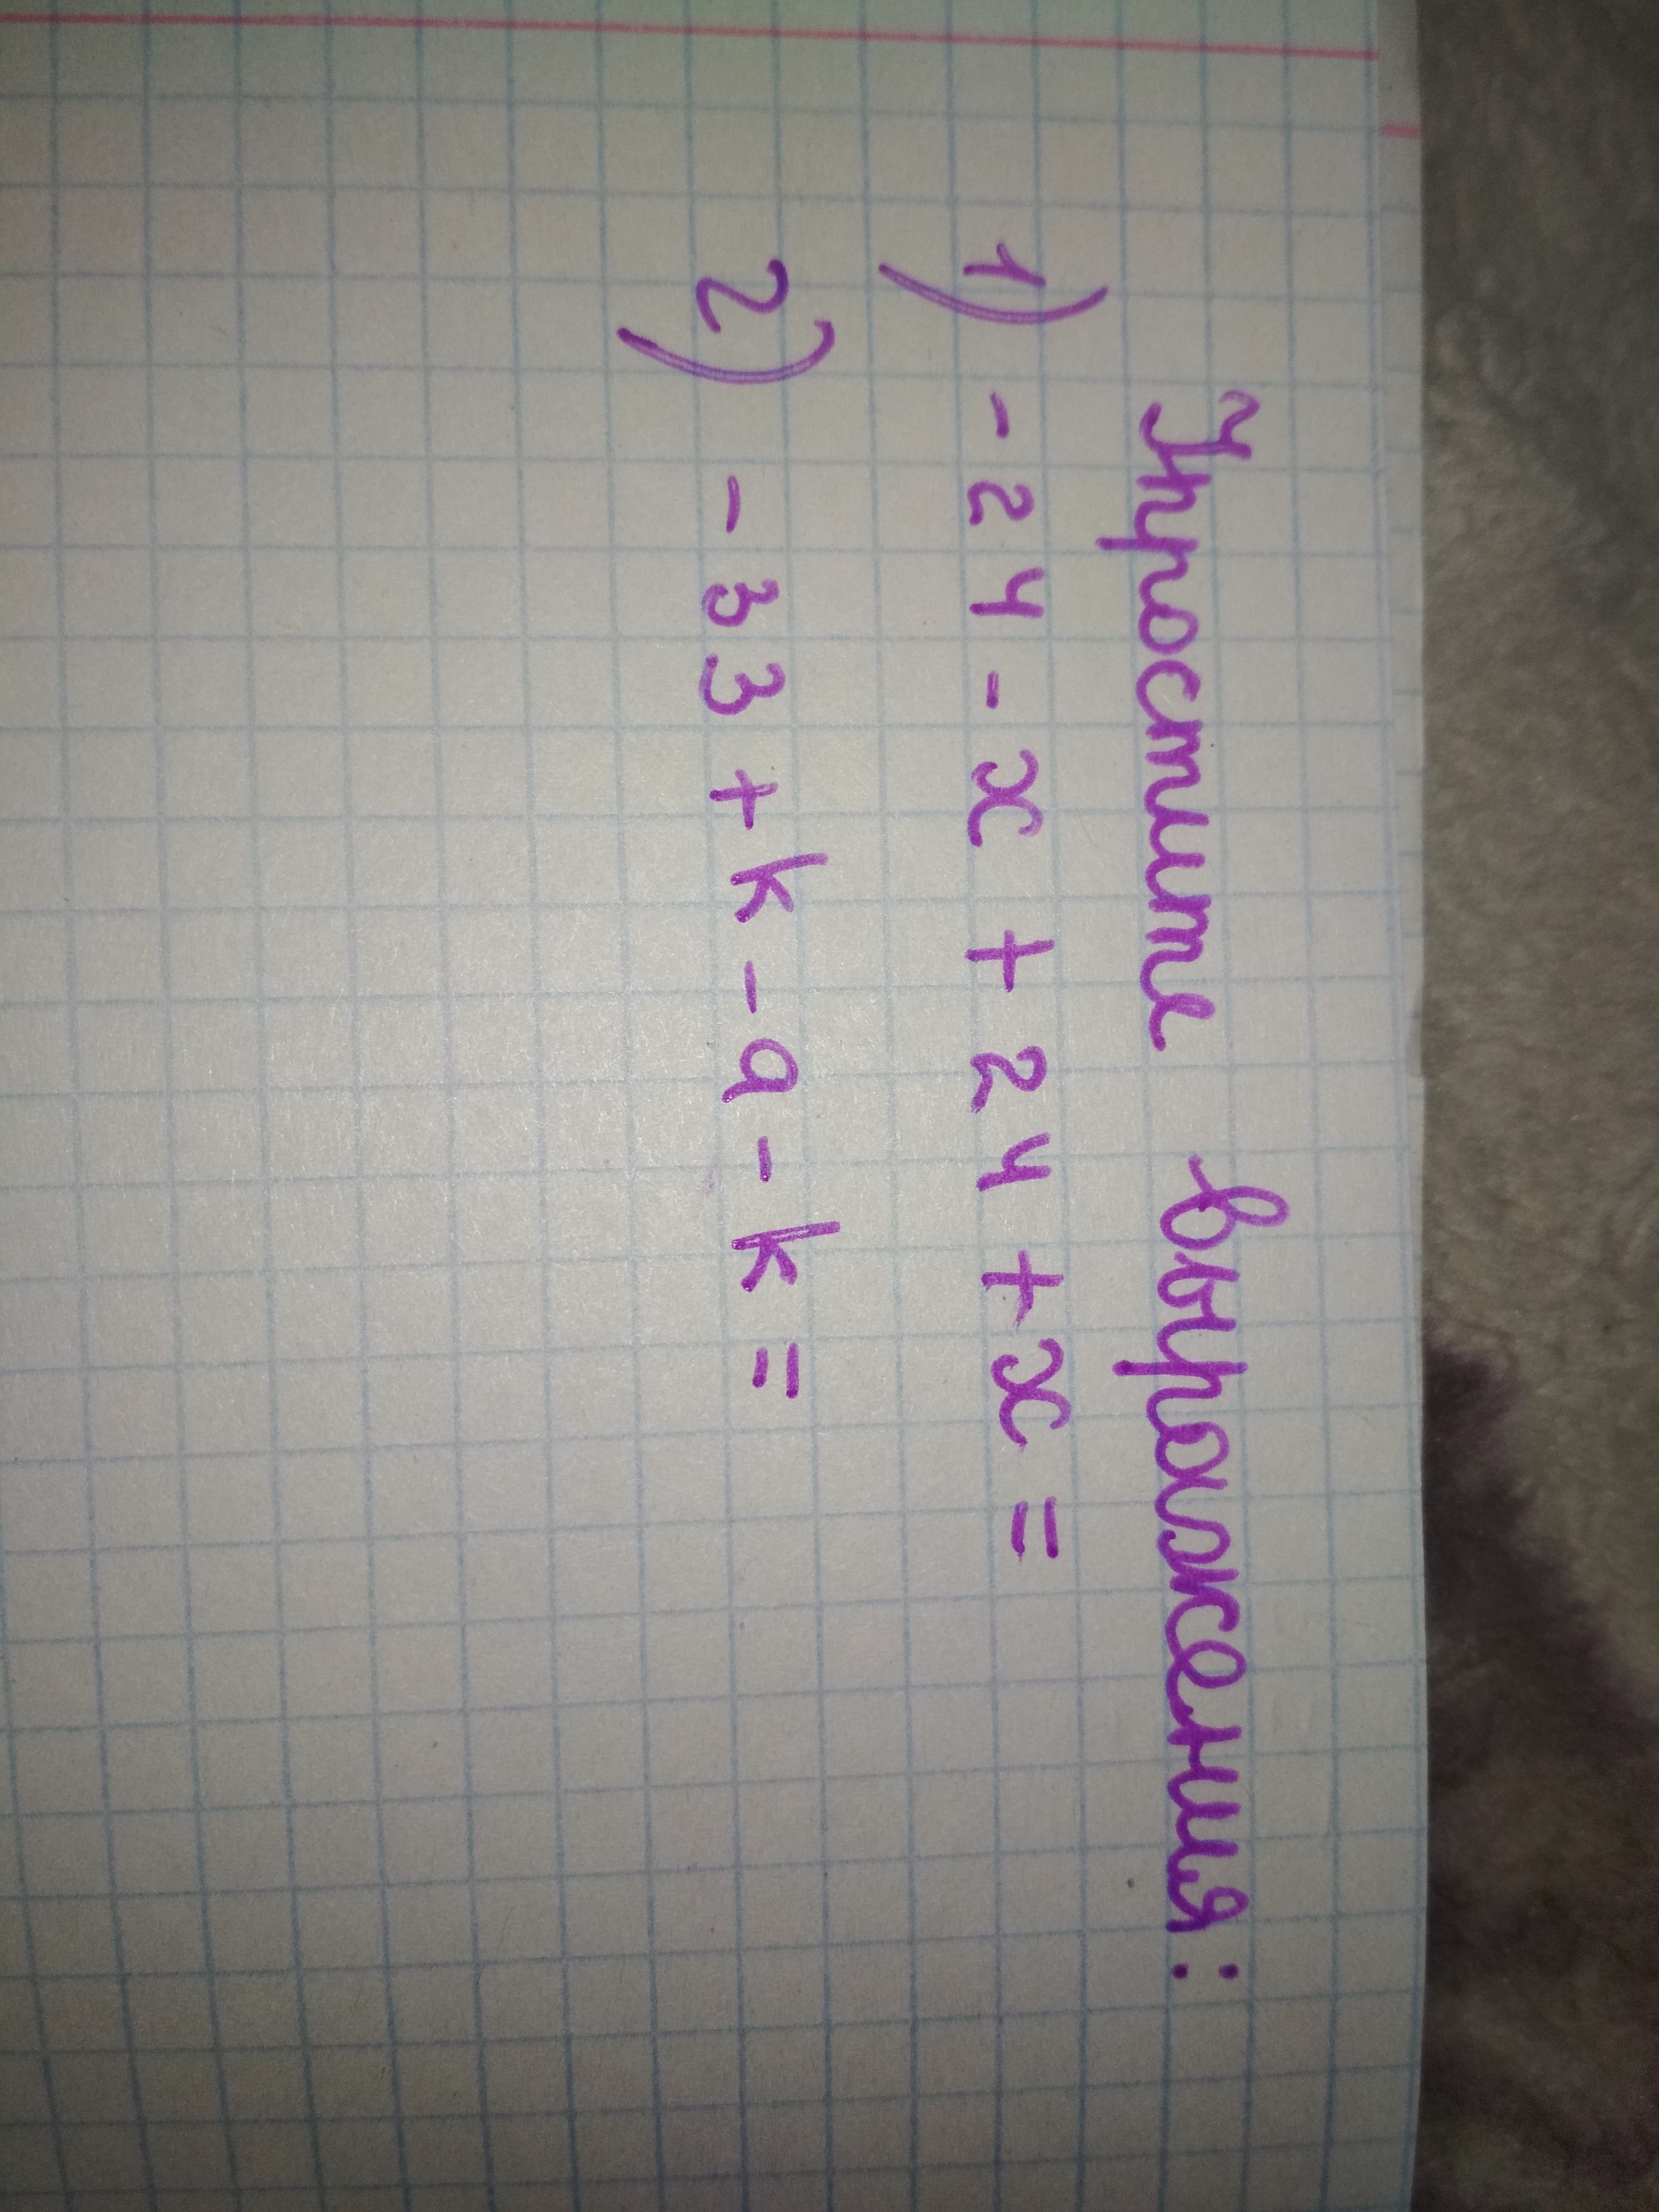 Упростите выражения:
1) -24-x+24+x=
2) -33+k-a-k=